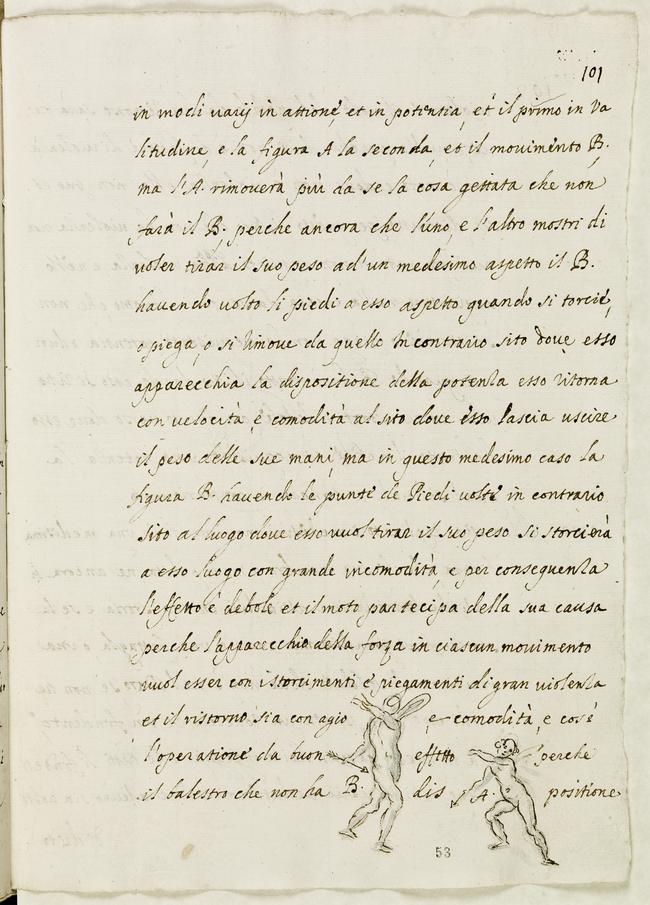 101
in modi varij in attione, et in potentia, et il primo in va
litudine, e la figura A la seconda, et il movimento B.
ma l'A. rimoverà più da se la cosa gettata che non
farà il B. perche ancora che l'uno, e l'altro mostri di
voler tirar il suo peso ad'un medesimo aspetto il B.
havendo volto li piedi a esso aspetto quando si torcie,
o piega, o si rimove da quello in contrario sito dove esso
apparecchia la dispositione della potenza esso ritorna
con velocità, e comodità al sito dove esso lascia uscire
il peso delle sue mani, ma in questo medesimo caso la
figura B. havendo le punte de Piedi volte in contrario
sito al luogo dove esso vuol tirar il suo peso si storcierà
a esso luogo con grande incomodità, e per conseguenza
l'effetto è debole et il moto partecipa della sua causa
perche l'apparecchio della forza in ciascun movimento
vuol esser con istorcimenti e piegamenti di gran violenza
et il ristorno sia con agio e comodità, e cosi
l'operatione da buon effetto perche
il balestro che non ha B. dis A. positione
53